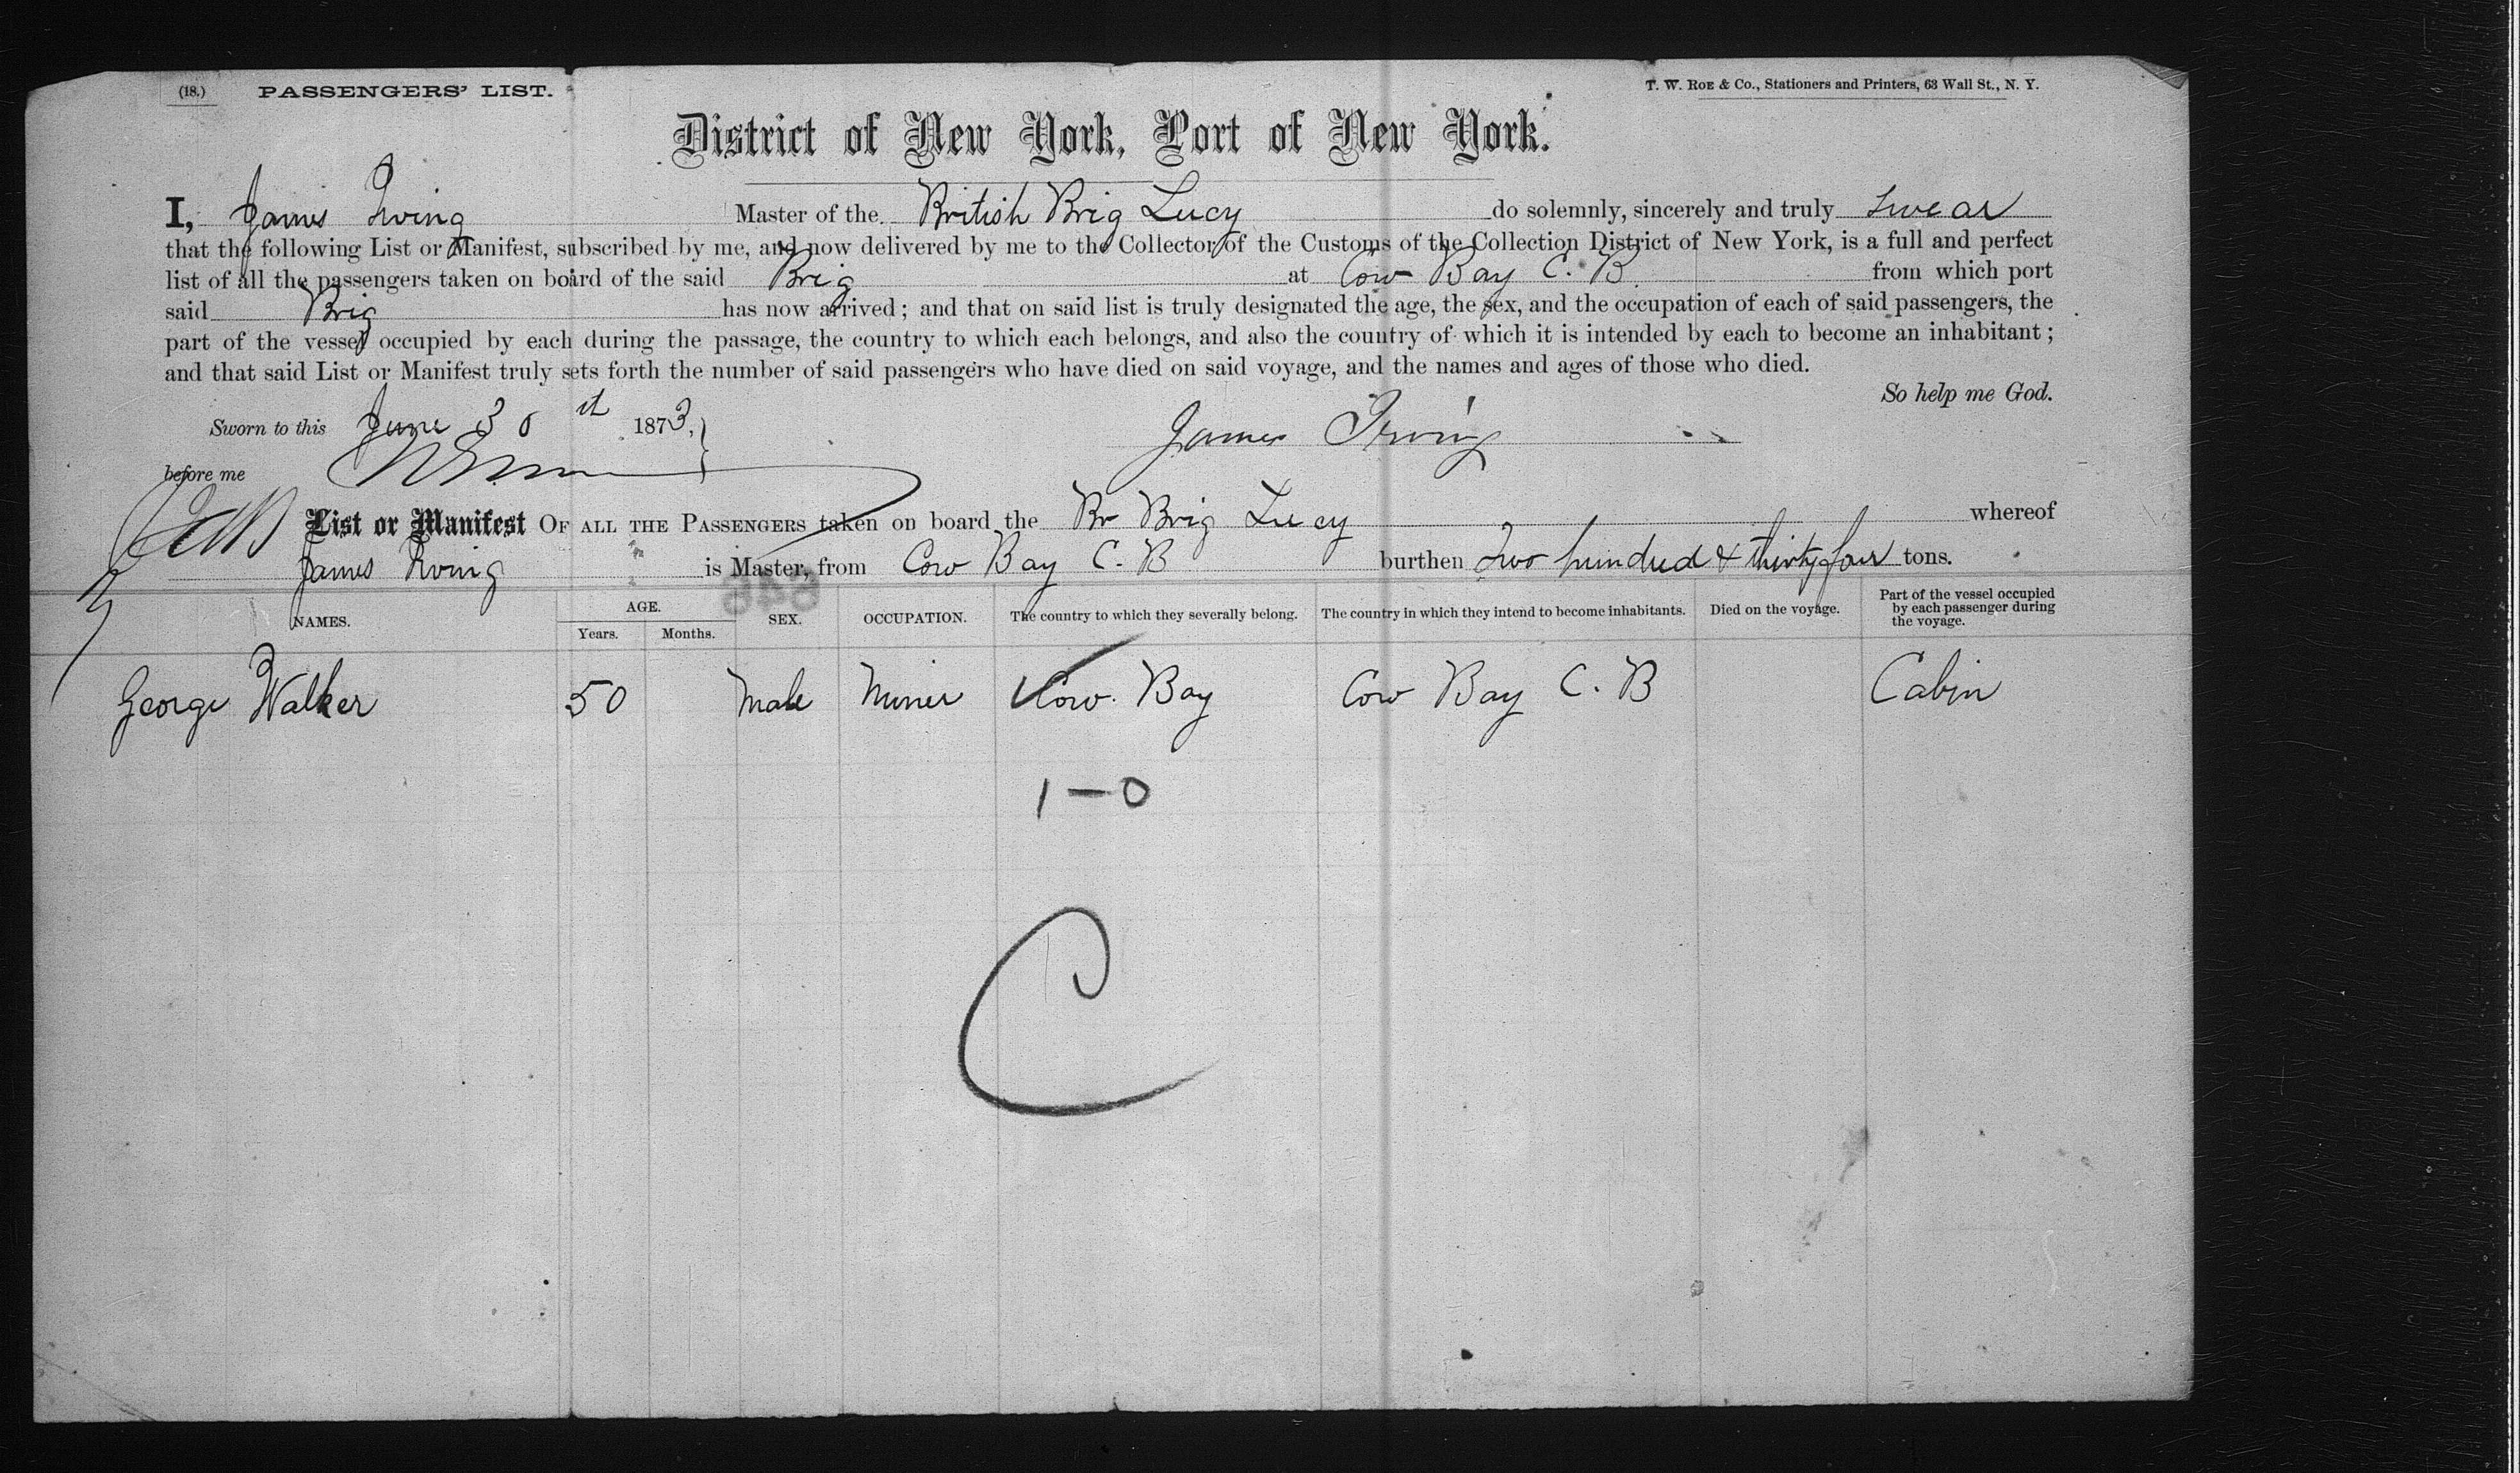 (18.) PASSENGERS' LIST. T. W. ROE & Co., Stationers and Printers, 63 Wall St., N. Y.
District of New York, Port of New York.
I, James Irving Master of the British Brig Lucy do solemnly, sincerely and truly swear
that the following List or Manifest, subscribed by me, and now delivered by me to the Collector of the Customs of the Collection District of New York, is a full and perfect
list of all the passengers taken on board of the said Brig at Cow Bay C. B. from which port
said Brig has now arrived; and that on said list is truly designated the age, the sex, and the occupation of each of said passengers, the
part of the vessel occupied by each during the passage, the country to which each belongs, and also the country of which it is intended by each to become an inhabitant;
and that said List or Manifest truly sets forth the number of said passengers who have died on said voyage, and the names and ages of those who died.
So help me God.
Sworn to this June 30th 1873, James Irving
before me
List or Manifest OF ALL THE PASSENGERS taken on board the Br Brig Lucy whereof
James Irving is Master, from Cow Bay C. B burthen Two hundred & thirty four tons.
NAMES. AGE. Years. Months. SEX. OCCUPATION. The country to which they severally belong. The country in which they intend to become inhabitants. Died on the voyage. Part of the vessel occupied by each passenger during the voyage.
George Walker 50 Male Miner Cow Bay Cow Bay C. B Cabin
1-0
C